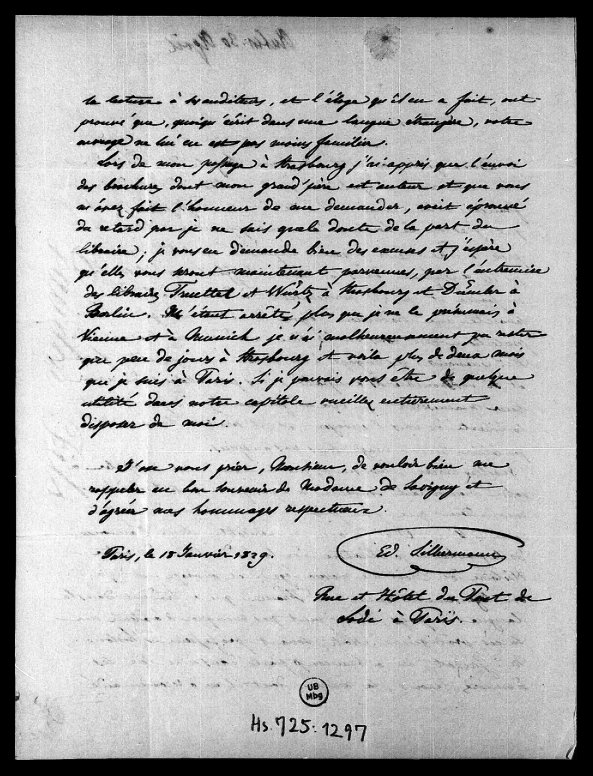 la lecture à ses auditeurs, et l'éloge qu'il en a fait, ont
prouvé que, quoique écrit dans une langue étrangère, votre
ouvrage ne lui en est pas moins familier.
Lors de mon passage à Strasbourg j'ai appris que l'envoi
des brochures dont mon grand'père est auteur et que vous
m'avez fait l'honneur de me demander, avait éprouvé
du retard par je ne sais quelle faute de la part du
libraire; je vous en demande bien des excuses et j'espère
qu'elles vous seront maintenant parvenues, par l'entremise
des libraires Treuttel et Würtz à Strasbourg et Dümler à
Berlin. M'étant arrêté plus que je ne le pensais à
Vienne et à Munich je n'ai malheureusement pu rester
que peu de jours à Strasbourg et voilà plus de deux mois
que je suis à Paris. Si je pouvais vous être de quelque
utilité dans notre capitale veuillez entièrement
disposer de moi.
J'ose vous prier, Monsieur, de vouloir bien me
rappeler au bon souvenir de Madame de Savigny et
d'agréer mes hommages respectueux.
Paris, le 18 Janvier 1829.
Ed. Silbermann
Rue et Hôtel du Pont de
Lodi à Paris.
UB
Mbg
Hs. 725:1297